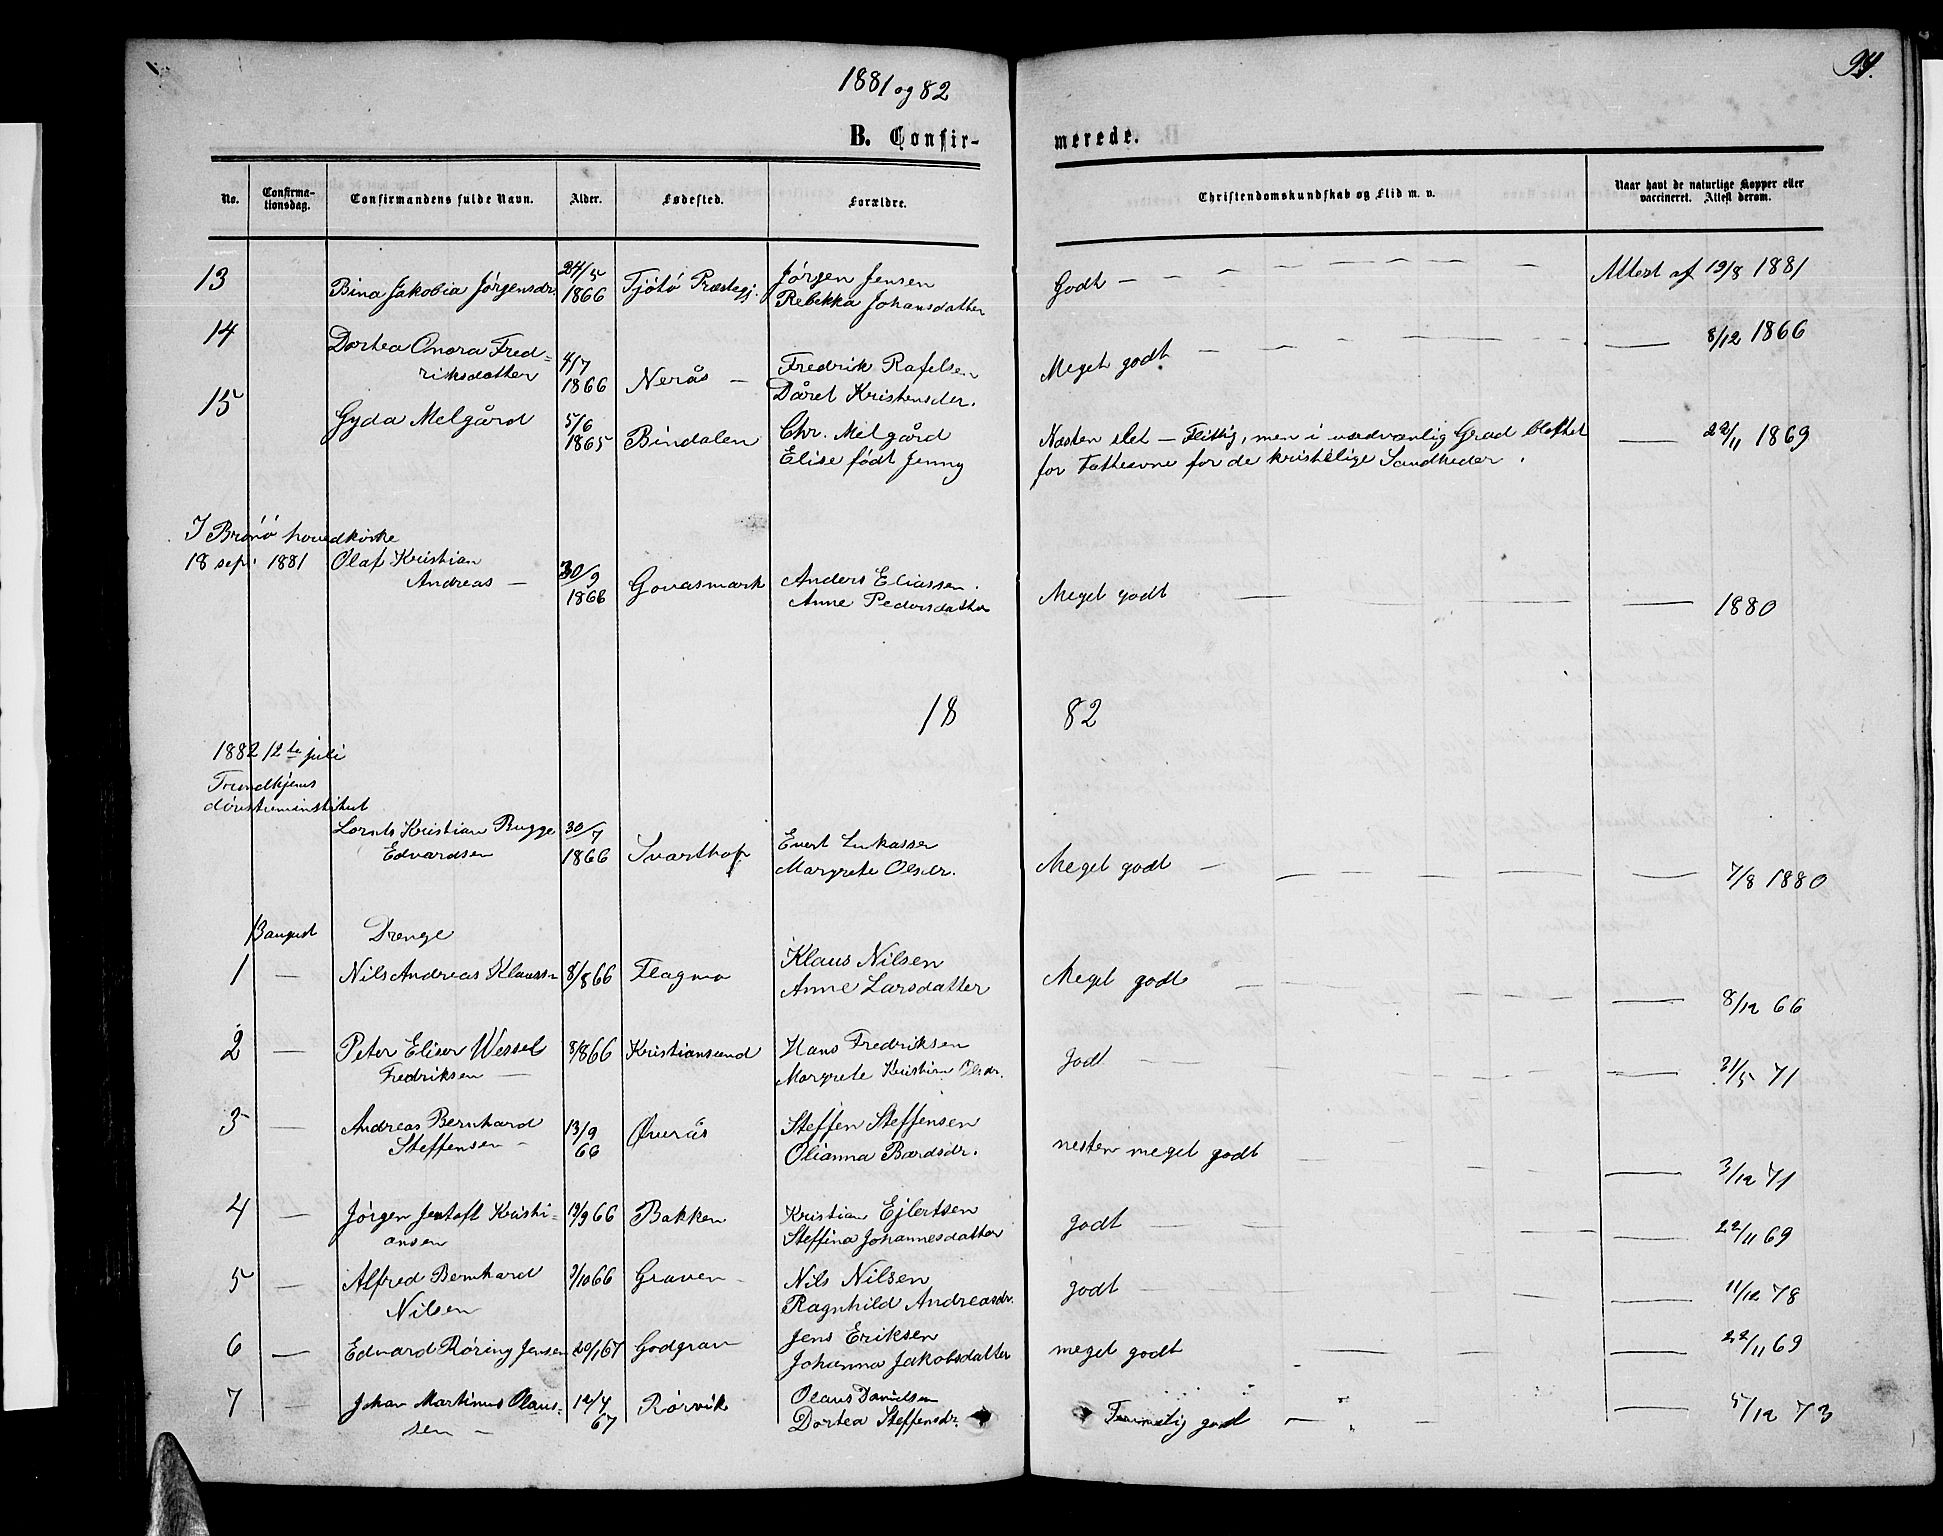 94.
1881 og 82
B. Confirmerede.
No. Confirmationsdag. Confirmandens fulde Navn. Alder. Fødested. Forældre. Christendomskundskab og Flid m. v. Naar havt de naturlige Kopper eller vaccineret. Attest derom.
13 Bina Jakobia Jørgensdr. 24/5 1866 Tjøtø Præstegj. Jørgen Jensen Godt — Attest af 19/8 1881
Rebekka Johansdatter
14 Dortea Onora Fred= 4/7 Fredrik Rafelsen Meget godt — 8/12 1866
riksdatter 1866 Nerås — Dåret Kristensdr.
15 Gyda Melgård 5/6 1865 Bindalen Chr. Melgård Næsten slet — Flittig, men i usedvanlig Grad bløttet — 22/11 1869
Elise født Jenny for Fatteevne for de kristelige Sandheder.
I Brønø hovedkirke
18 sept. 1881 Olaf Kristian 30/9 Anders Eliassen
Andreas — 1866 Govasmark Anne Pedersdatter Meget godt — 1880
1882
1882 12te juli
Trondhjems
døvstuminstitut
Lornts Kristian Bugge 30/7 Evert Lukassen
Edvardsen 1866 Svarthop Margrete Olsdr. Meget godt — 7/8 1880
13 august Drenge
1 — Nils Andreas Klaussn 8/8 66 Flagmo Klaus Nilsen Meget godt — 8/12 66
Anne Larsdatter
2 — Peter Eliser Wessel 8/8 66 Kristiansund Hans Fredriksen godt — 31/5 71
Fredriksen — Margrete Kristine Olsdr.
3 — Andreas Bernhard 13/9 66 Øverås Steffen Steffensen nesten meget godt — 3/12 71
Steffensen — Olianna Bårdsdr.
4 — Jørgen Jentoft Kristi- 19/9 66 Bakken Kristian Ejlertsen godt — 22/11 69
ansen Steffina Johannesdatter
5 — Alfred Bernhard 2/10 66 Graven — Nils Nilsen godt — 11/12 78
Nilsen Ragnhild Andreasdr.
6 — Edvard Røring Jensen 20/1 67 Godgrav Jens Eriksen meget godt — 22/11 69
Johanna Jakobsdatter
7 — Johan Martinus Olaus- 12/4 67 Rørvik Olaus Danielsen Temmelig godt — 5/12 73
sen — Dortea Steffensdr.